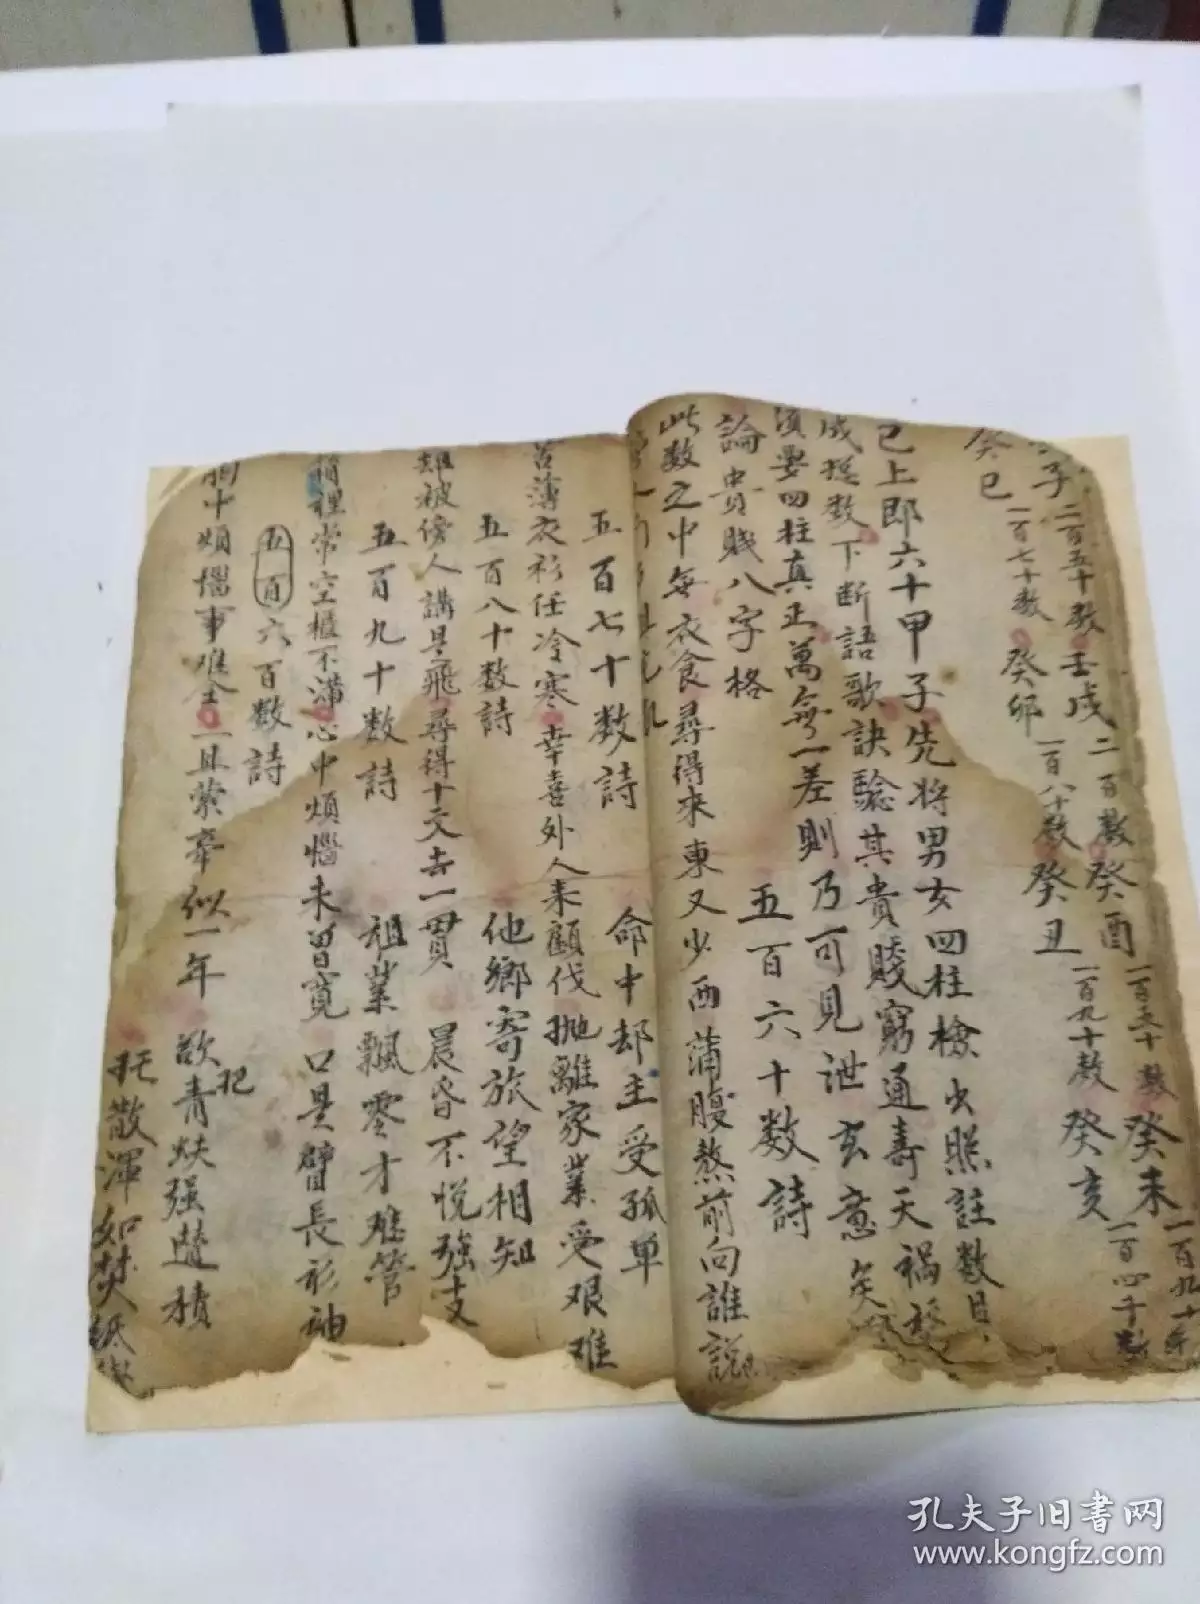 子 二百五十数 壬戌 二百数 癸酉 一百五十数 癸未 一百九十数
癸巳 一百七十数 癸卯 一百八十数 癸丑 一百九十数 癸亥 一百四十数
已上郎六十甲子先将男女四柱檢出照註数目
成総数下断語歌訣驗其貴賤窮通壽夭禍
須要四柱真正萬無一差則乃可見泄玄意矣
論貴賤八字格 五百六十数詩
此数之中每衣食尋得來東又少西蒲腹熬煎向誰說
五百七十数詩 命中却主受孤单
苦薄衣衫任冷寒幸喜外人来顧伐抛離家業受艰难
五百八十数詩 他鄉寄旅望相知
雖被傍人講是飛尋得十文去一貫 晨昏不悦強支
五百九十数詩 祖業飄零才难管
箱裡常空櫃不滿心中煩惱未曽寬 口是臂長衫袖
五百六百数詩
胸中煩惱事难全一且縈牽似一年 欲把青蚨强趲積
托散渾如焚紙
孔夫子旧书网
www.kongfz.com